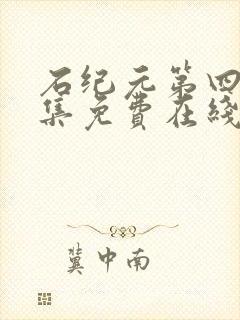 石纪元第四
集免费在线
冀中南